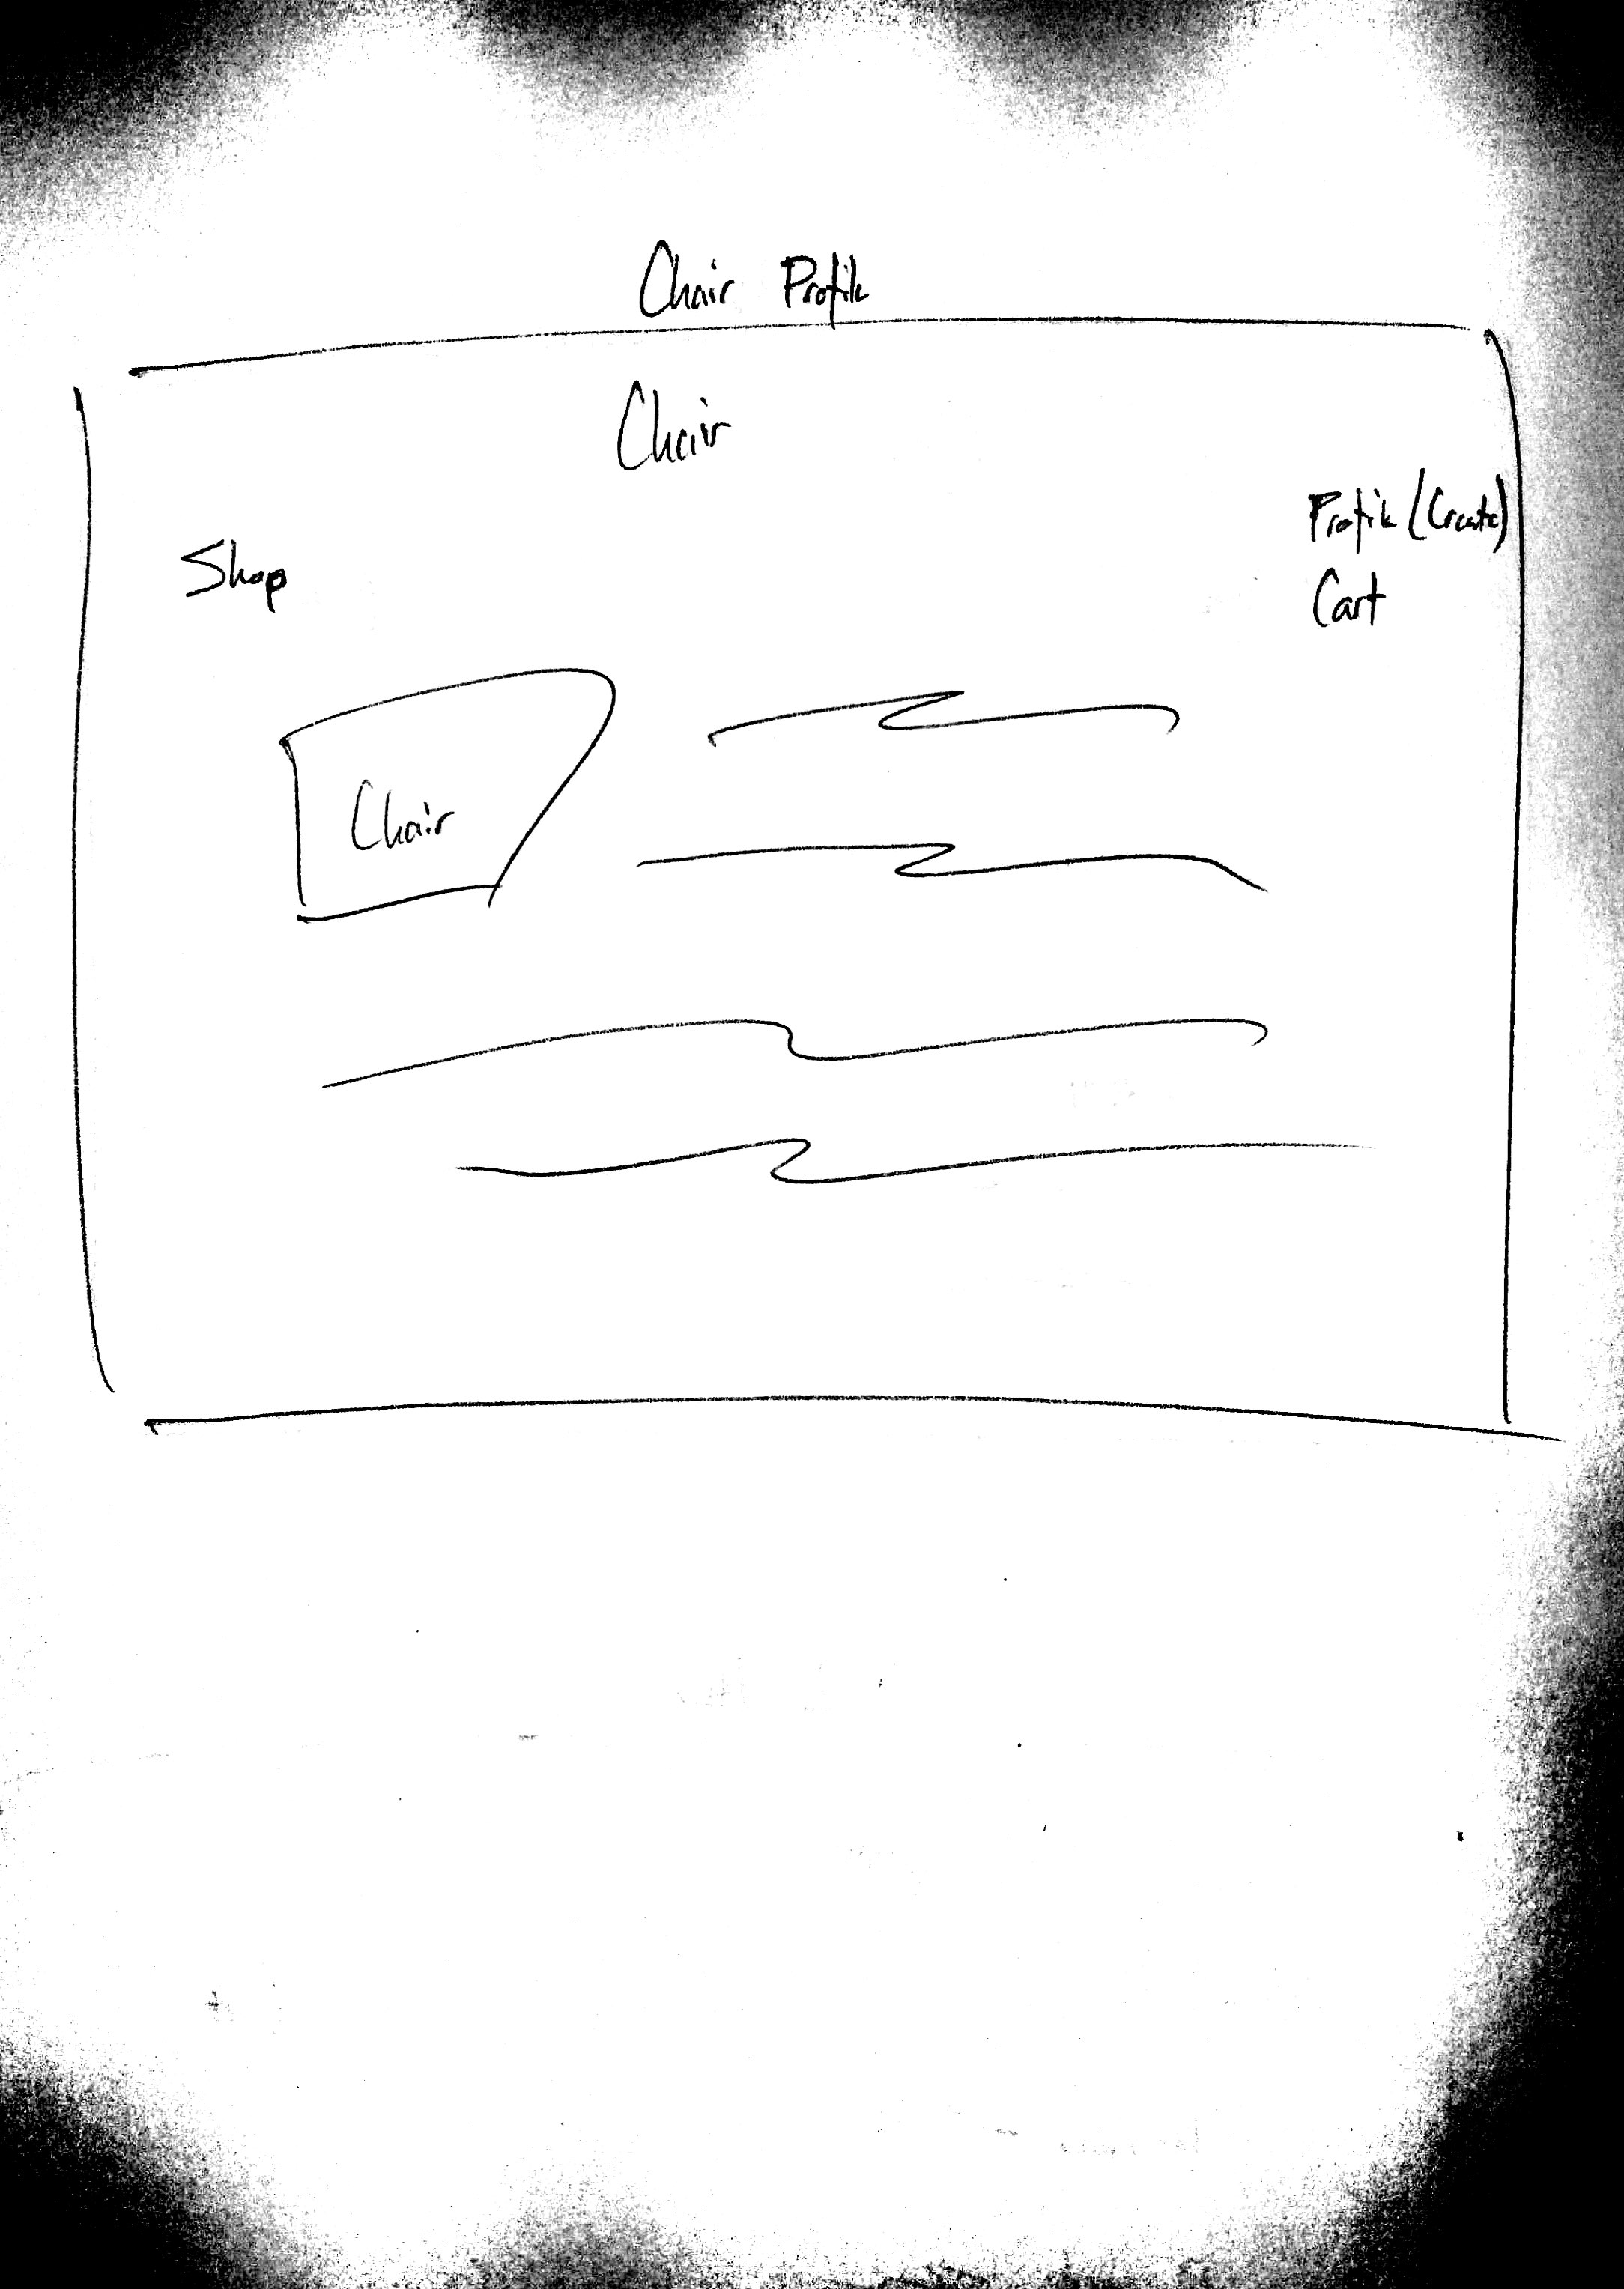 Chair Profile
Chair
Profile (Create)
Shop
Cart
Chair